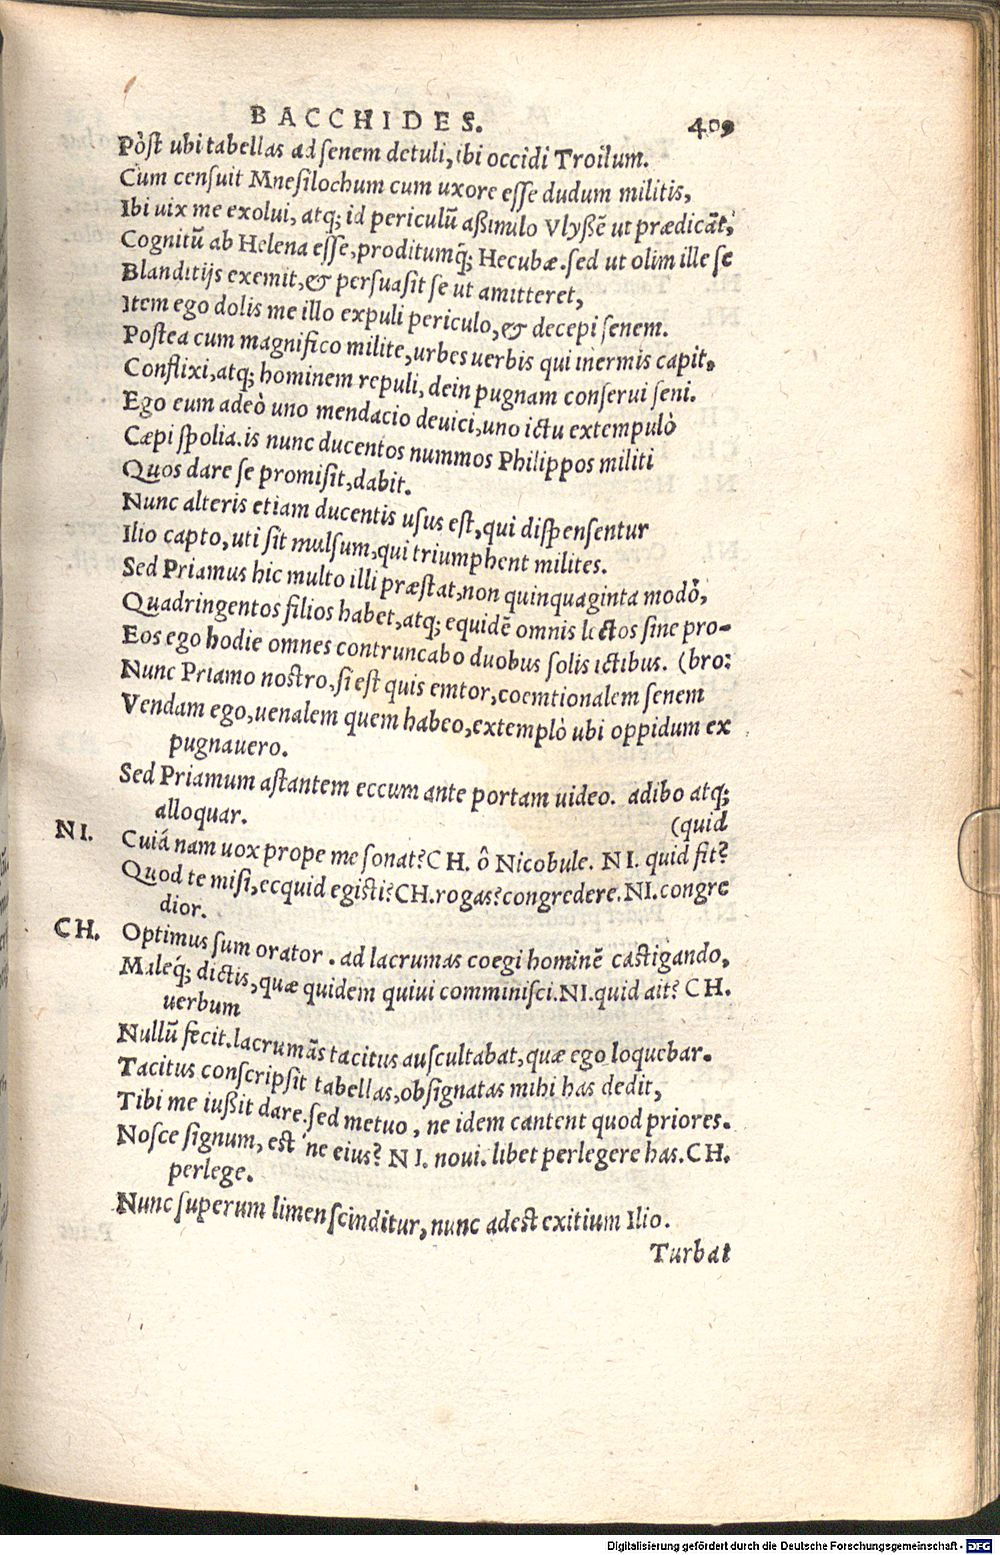 BACCHIDES. 409
Pòst ubi tabellas ad senem detuli, ibi occidi Troilum.
Cum censuit Mnesilochum cum uxore esse dudum militis,
Ibi uix me exolui, atq; id periculũ aßimulo Vlyßẽ ut prædicãt,
Cognitũ ab Helena esse, proditumq́; Hecubæ. sed ut olim ille se
Blanditijs exemit, & persuasit se ut amitteret,
Item ego dolis me illo expuli periculo, & decepi senem.
Postea cum magnifico milite, urbes uerbis qui inermis capit,
Conflixi, atq; hominem repuli, dein pugnam conserui seni.
Ego eum adeò uno mendacio deuici, uno ictu extempulò
Cæpi spolia. is nunc ducentos nummos Philippos militi
Quos dare se promisit, dabit.
Nunc alteris etiam ducentis usus est, qui dispensentur
Ilio capto, uti sit mulsum, qui triumphent milites.
Sed Priamus hic multo illi præstat, non quinquaginta modò,
Quadringentos filios habet, atq; equidẽ omnis lectos sine pro-
Eos ego hodie omnes contruncabo duobus solis ictibus. (bro:
Nunc Priamo nostro, si est quis emtor, coemtionalem senem
Vendam ego, uenalem quem habeo, extemplò ubi oppidum ex
pugnauero.
Sed Priamum astantem eccum ante portam uideo. adibo atq;
alloquar. (quid
NI. Cuiá nam uox prope me sonat? CH. ô Nicobule. NI. quid fit?
Quod te misi, ecquid egisti? CH. rogas? congredere. NI. congre
dior.
CH. Optimus sum orator. ad lacrumas coegi hominẽ castigando,
Maleq́; dictis, quæ quidem quiui comminisci. NI. quid ait? CH.
uerbum
Nullũ fecit. lacrumãs tacitus auscultabat, quæ ego loquebar.
Tacitus conscripsit tabellas, obsignatas mihi has dedit,
Tibi me iußit dare. sed metuo, ne idem cantent quod priores.
Nosce signum, est 'ne eius? NI. noui. libet perlegere has. CH.
perlege.
Nunc superum limen scinditur, nunc adest exitium Ilio.
Turbat
Digitalisierung gefördert durch die Deutsche Forschungsgemeinschaft - DFG